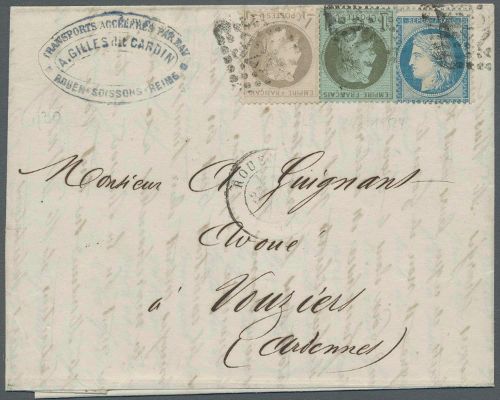 TRANSPORTS ACCÉLÉRÉS PAR EAU
A. GILLES dit CARDIN
ROUEN-SOISSONS-REIMS
EMPIRE FRANÇAIS
EMPIRE FRANÇAIS
ROUEN
Monsieur A Guignant
Avoué
à Vouziers
(Ardennes)